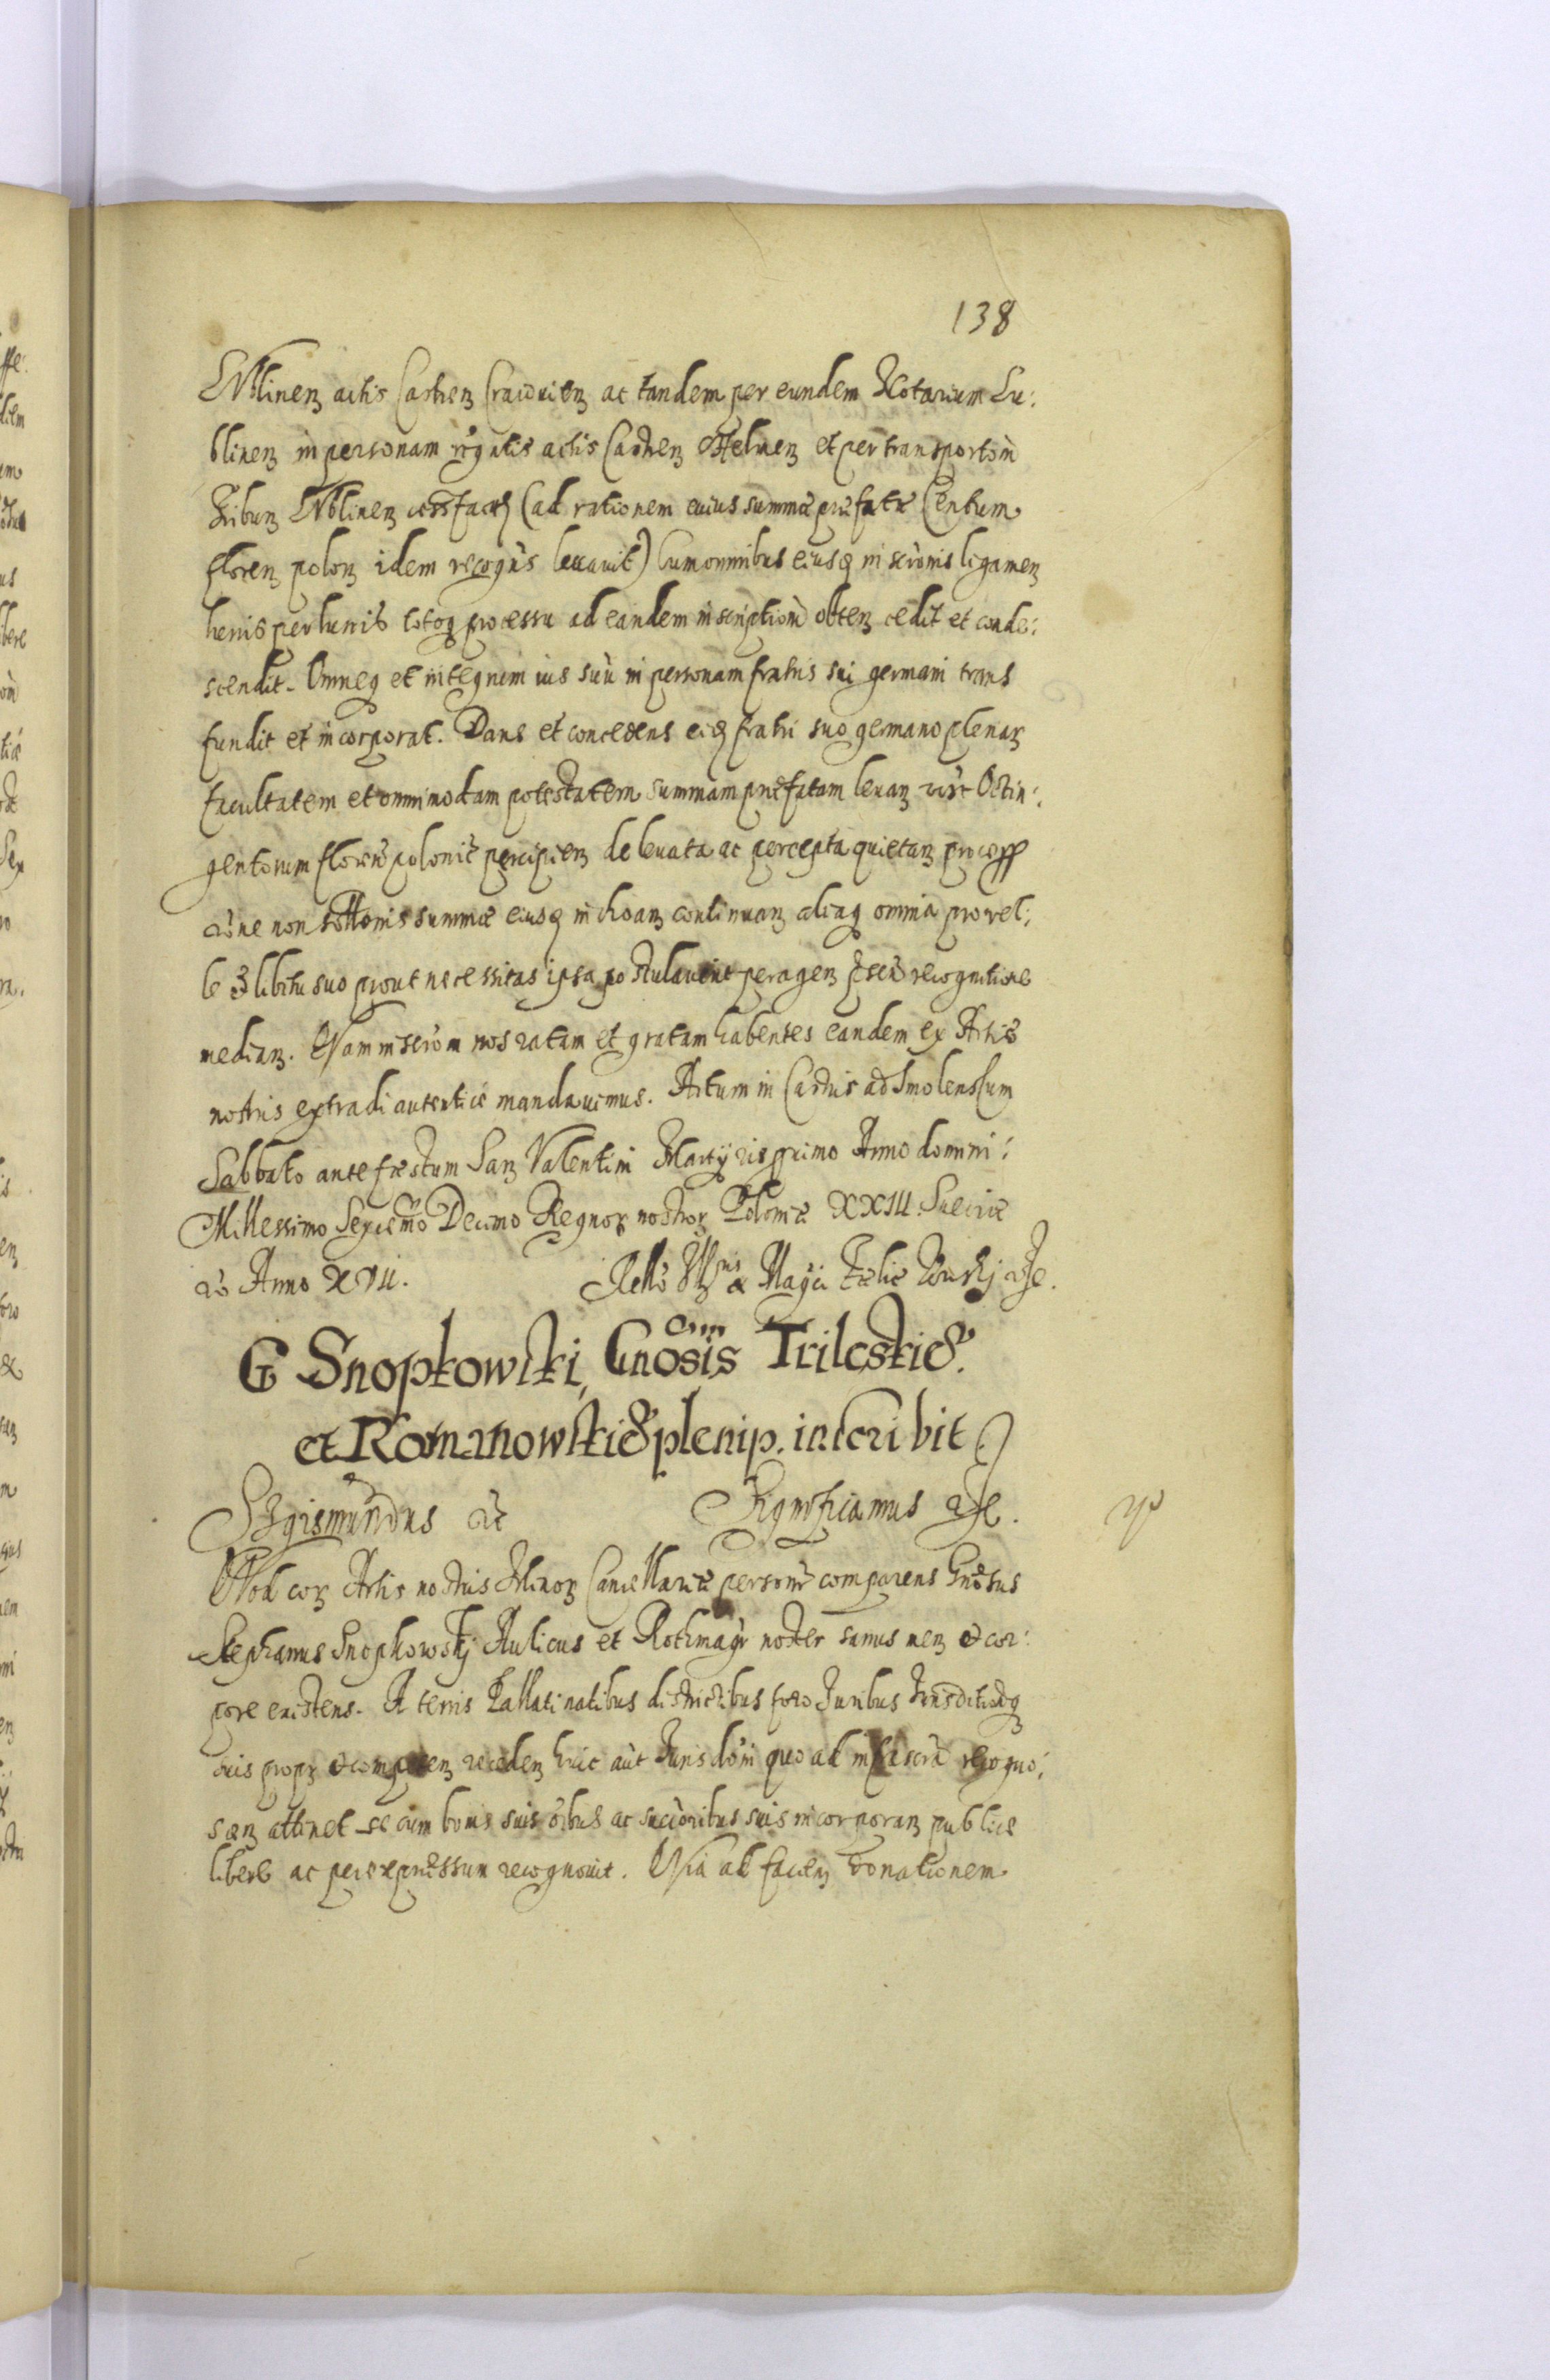 138
actis Castren Cracovien ac tandem per eundem Notarium Lu:
blinen in personam actis Castren Chelmen et per transportom
Tribun (ad rationem cuius summæ præfatæ Centum
floren polon idem recogns levavit) Cum omnibus eiusq inscrōnis ligamen
totoq processu ad eandem inscriptionē obten cedit et conde:
scendit. Omneq et integrum ius suū in personam fratris sui germani trans
fundit et incorporat. Dans et concedens eidē fratri suo germano plenar
facultatem et omnimodam potestatem summam præfatam levan Octin:
gentorum floren polonic percipien de levata ac percepta quietan
non summæ eiusq inchoan continuan aliaq omnia pro vel:
le et libitu suo prout necessitas ipsa postulaverit peragen recognitione
median. inscrōm nos ratam et gratam habentes eandem ex Actis
nostris extradi autentice mandavimus. Actum in Castris ad Smolenscum
Sabbato ante festum San Valentini Martyris primo Anno domini:
Millessimo Sexcemō Decimo Regnor nostror Poloniæ XXIII. Sueciæ
vō Anno XVII. Relō
G Snopkowski, Gnōsis Trileski&
et Romanowski& plenip. inscribit
Sigismundus &c Significamus
Quod cor Actis nostris Minor Cancellariæ personr comparens Gnōsus
Stephanus Snopkowskj Aulicus et Rothmagr noster sanus men & cor:
pore existens. A terris Pallatinatibus districtibus foro Juribus
suis propr & competen receden huic aūt Jurisdōni quo ad infrascrā recogno:
scen attinet se cum bonis suis ōibus ac succōribus suis incorporan publice
libere ac per expressum recognovit. Quia ad facien donationem